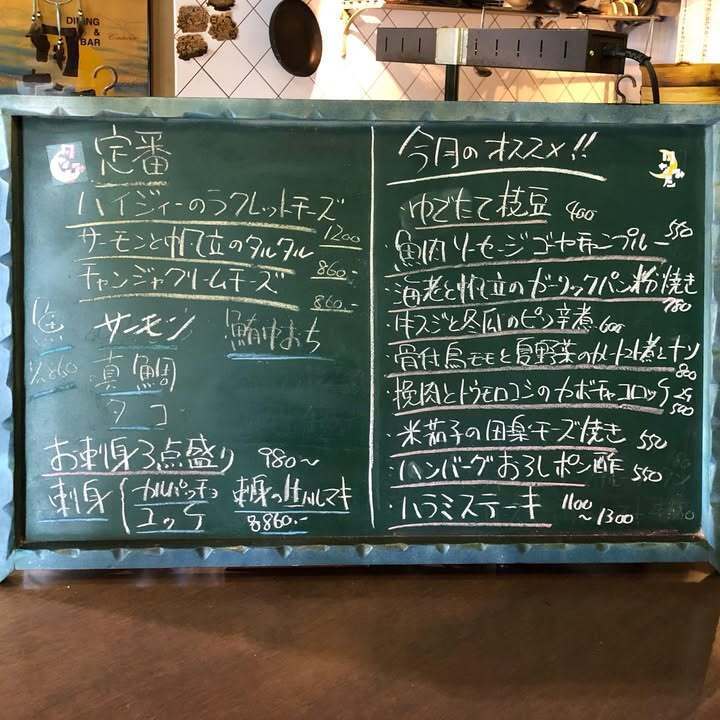 DINING
&
BAR
定番
ハイジィーのラクレットチーズ
1200
サーモンと帆立のタルタル
860.-
チャンジャクリームチーズ
860.-
魚 サーモン 鮪中おち
860
真鯛
タコ
お刺身3点盛り 980〜
刺身 カルパッチョ 刺身の生ハルマキ
ユッケ 860.-
今月のオススメ!!
・ゆでたて枝豆 400
・魚肉ソーセージゴーヤチャンプルー 550
・海老と帆立のガーリックパン粉焼き
780
・牛スジと冬瓜のピリ辛煮 600
・骨付鳥モモと夏野菜のトマト煮
800
・挽肉とトウモロコシのカボチャコロッケ 2ケ
500
・米茄子の田楽チーズ焼き 550
・ハンバーグおろしポン酢 550
・ハラミステーキ 1100
〜1300